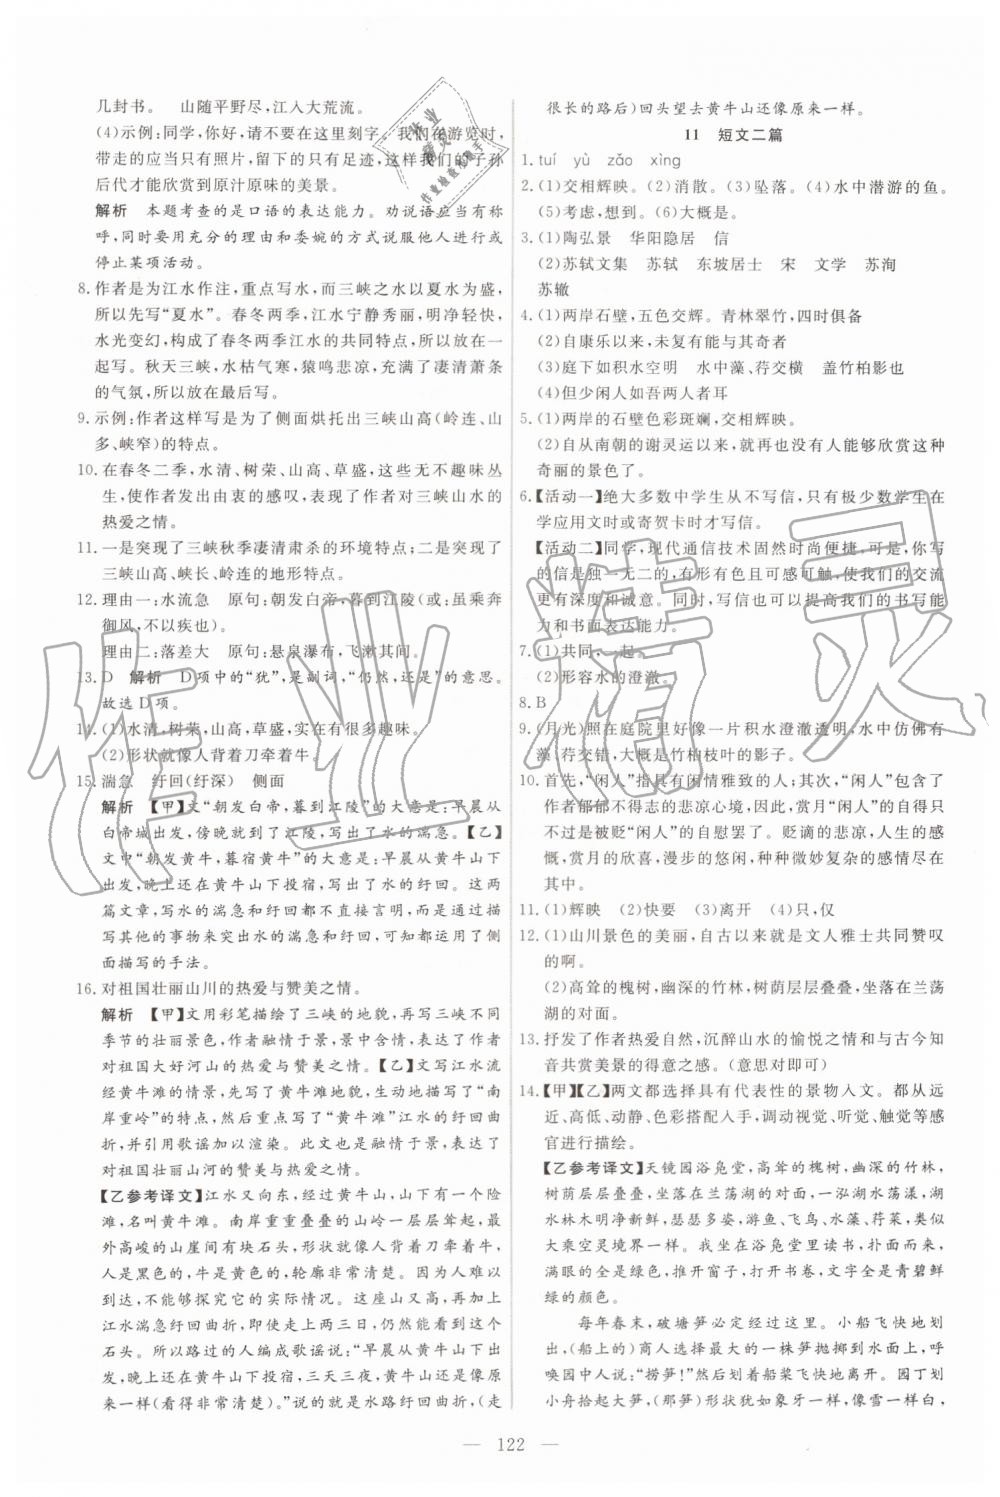 几封书。　山随平野尽，江入大荒流。
(4)示例：同学，你好，请不要在这里刻字。我们在游览时，
带走的应当只有照片，留下的只有足迹，这样我们的子孙
后代才能欣赏到原汁原味的美景。
解析　本题考查的是口语的表达能力。劝说语应当有称
呼，同时要用充分的理由和委婉的方式说服他人进行或
停止某项活动。
8. 作者是为江水作注，重点写水，而三峡之水以夏水为盛，
所以先写“夏水”。春冬两季，江水宁静秀丽，明净轻快，
水光变幻，构成了春冬两季江水的共同特点，所以放在一
起写。秋天三峡，水枯气寒，猿鸣悲凉，充满了凄清萧条
的气氛，所以放在最后写。
9. 示例：作者这样写是为了侧面烘托出三峡山高(岭连、山
多、峡窄)的特点。
10. 在春冬二季，水清、树荣、山高、草盛，这些无不趣味丛
生，使作者发出由衷的感叹，表现了作者对三峡山水的
热爱之情。
11. 一是突现了三峡秋季凄清肃杀的环境特点；二是突现了
三峡山高、峡长、岭连的地形特点。
12. 理由一：水流急　原句：朝发白帝，暮到江陵(或：虽乘奔
御风，不以疾也)。
理由二：落差大　原句：悬泉瀑布，飞漱其间。
13. D　解析　D项中的“犹”，是副词，“仍然，还是”的意思。
故选D项。
14. (1)水清，树荣，山高，草盛，实在有很多趣味。
(2)形状就像人背着刀牵着牛。
15. 湍急　纡回(纡深)　侧面
解析　【甲】文“朝发白帝，暮到江陵”的大意是：早晨从
白帝城出发，傍晚就到了江陵，写出了水的湍急。【乙】
文中“朝发黄牛，暮宿黄牛”的大意是：早晨从黄牛山下
出发，晚上还在黄牛山下投宿，写出了水的纡回。这两
篇文章，写水的湍急和纡回都不直接言明，而是通过描
写其他的事物来突出水的湍急和纡回，可知都运用了侧
面描写的手法。
16. 对祖国壮丽山川的热爱与赞美之情。
解析　【甲】文用彩笔描绘了三峡的地貌，再写不同
季节的壮丽景色，作者融情于景，景中含情，表现了作者
对祖国大好河山的热爱与赞美之情。【乙】文写江水流
经黄牛滩的情景，先写了黄牛滩地貌，生动地描写了“南
岸重岭”的特点，然后重点描写了“黄牛滩”江水的纡回曲
折，并引用歌谣加以渲染。此文也是融情于景，表达了
对祖国壮丽山河的赞美与热爱之情。
【乙参考译文】江水又向东，经过黄牛山，下有一个险
滩，名叫黄牛滩。南岸重重叠叠的山岭一层层耸起，最
外面高高的山崖间有块石头，形状就像人背着刀牵着牛，
人是黑色的，牛是黄色的，轮廓非常清楚。因为人难以
到达，不能够探究它的实际情况。这座山又高，再加上
江水湍急纡回曲折，即使走上两三日，仍然能看到这个
石头。所以路过的人编成歌谣说：“早晨从黄牛山下出
发，晚上还在黄牛山下投宿，三天三夜，黄牛山还像原
来一样(看得非常清楚)。”说的就是水路纡回曲折，(走
很长的路后)回头望去黄牛山还像原来一样。
11　短文二篇
1. tuí　yù　zǎo　xìng
2. (1)交相辉映。(2)消散。(3)坠落。(4)水中潜游的鱼。
(5)考虑，想到。(6)大概是。
3. (1)陶弘景　华阳隐居　信
(2)苏轼文集　苏轼　东坡居士　宋　文学　苏洵
苏辙
4. (1)两岸石壁，五色交辉。青林翠竹，四时俱备
(2)自康乐以来，未复有能与其奇者
(3)庭下如积水空明　水中藻、荇交横　盖竹柏影也
(4)但少闲人如吾两人者耳
5. (1)两岸的石壁色彩斑斓，交相辉映。
(2)自从南朝的谢灵运以来，就再也没有人能够欣赏这种
奇丽的景色了。
6. 【活动一】绝大多数中学生从不写信，只有极少数学生在
学应用文时或寄贺卡时才写信。
【活动二】同学，现代通信技术固然时尚便捷，可是，你写
的信是独一无二的，有形有色且可感可触，使我们的交流
更有深度和诚意。同时，写信也可以提高我们的书写能
力和书面表达能力。
7. (1)共同，一起。
(2)形容水的澄澈。
8. B
9. (月光)照在庭院里好像一片积水澄澈透明，水中仿佛有
藻、荇交错，大概是竹柏枝叶的影子。
10. 首先，“闲人”指具有闲情雅致的人；其次，“闲人”包含了
作者郁郁不得志的悲凉心境，因此，赏月“闲人”的自得只
不过是被贬“闲人”的自慰罢了。贬谪的悲凉，人生的感
慨，赏月的欣喜，漫步的悠闲，种种微妙复杂的感情尽在
其中。
11. (1)辉映　(2)快要　(3)离开　(4)只，仅
12. (1)山川景色的美丽，自古以来就是文人雅士共同赞叹
的啊。
(2)高耸的槐树，幽深的竹林，树荫层层叠叠，坐落在兰荡
湖的对面。
13. 抒发了作者热爱自然，沉醉山水的愉悦之情和与古今知
音共赏美景的得意之感。(意思对即可)
14. 【甲】【乙】两文都选择具有代表性的景物入文。都从远
近、高低、动静、色彩搭配入手，调动视觉、听觉、触觉等感
官进行描绘。
【乙参考译文】天镜园浴凫堂，高耸的槐树，幽深的竹林，
树荫层层叠叠，坐落在兰荡的对面，一泓湖水荡漾，湖
水林木明净新鲜，瑟瑟多姿，游鱼、飞鸟、水藻、荇菜，类似
大乘空灵境界。我坐在浴凫堂里读书，扑面而来的，
满眼的全是绿色，推开窗子，打开书卷，文字全是青碧鲜
绿的颜色。
每年春末，破塘笋必定经过这里。小船飞快地划
出，(船上的)商人选择最大的一株笋抛到水面上，呼
唤园中人说：“捞笋！”然后划着船桨飞快地离去。园丁划
小舟拾起大笋，(那笋)形状犹如象牙一样，像雪一样白，
— 122 —
作业精灵